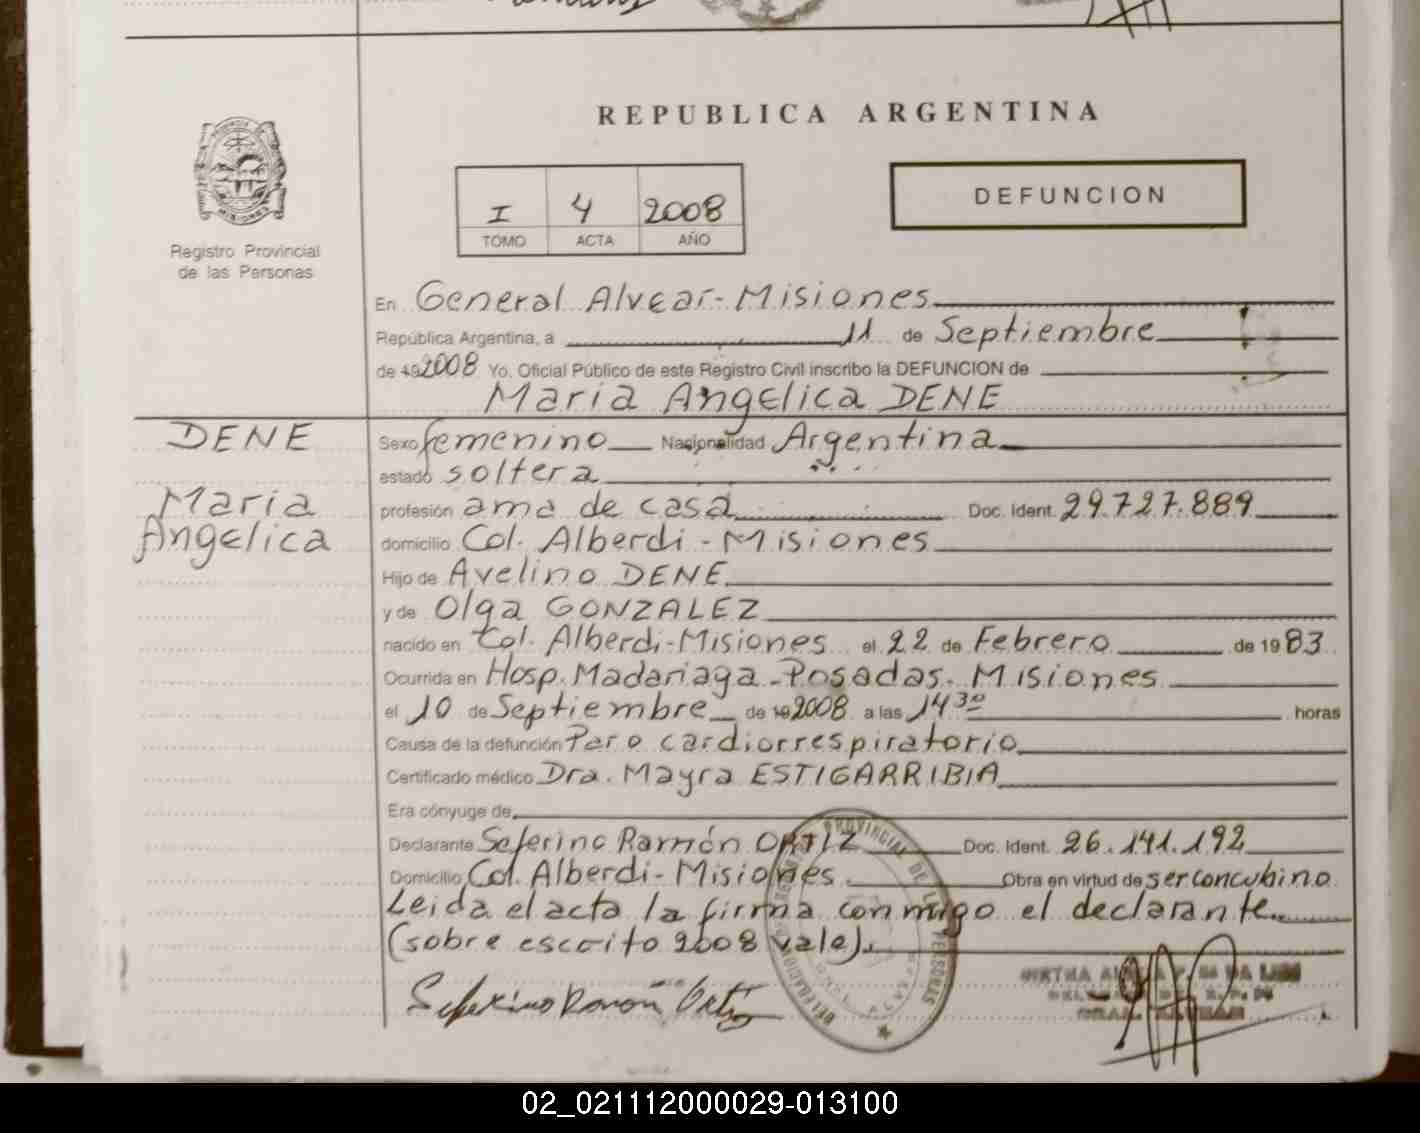 REPUBLICA ARGENTINA
I 4 2008
TOMO ACTA AÑO
DEFUNCION
PROVINCIA DE
MISIONES
Registro Provincial
de las Personas
En General Alvear-Misiones
República Argentina, a 11 de Septiembre
de 192008 Yo, Oficial Público de este Registro Civil inscribo la DEFUNCION de
Maria Angelica DENE
DENE
Maria
Angelica
Sexo femenino Nacionalidad Argentina
estado soltera
profesión ama de casa Doc. Ident. 29.727.889
domicilio Col. Alberdi-Misiones
Hijo de Avelino DENE
y de Olga GONZALEZ
nacido en Col. Alberdi-Misiones el 22 de Febrero de 1983
Ocurrida en Hosp. Madariaga-Posadas. Misiones
el 10 de Septiembre de 192008 a las 14 30 horas
Causa de la defunción Paro cardiorrespiratorio
Certificado médico Dra. Mayra ESTIGARRIBIA
Era cónyuge de
Declarante Seferino Ramón ORTIZ Doc. Ident. 26.141.192
Domicilio Col. Alberdi-Misiones Obra en virtud de ser concubino
Leida el acta la firma conmigo el declarante.
(sobre escrito 2008 vale).
Seferino Ramón Ortiz
PROVINCIAL DE LAS PERSONAS
DELEGACION
02_021112000029-013100